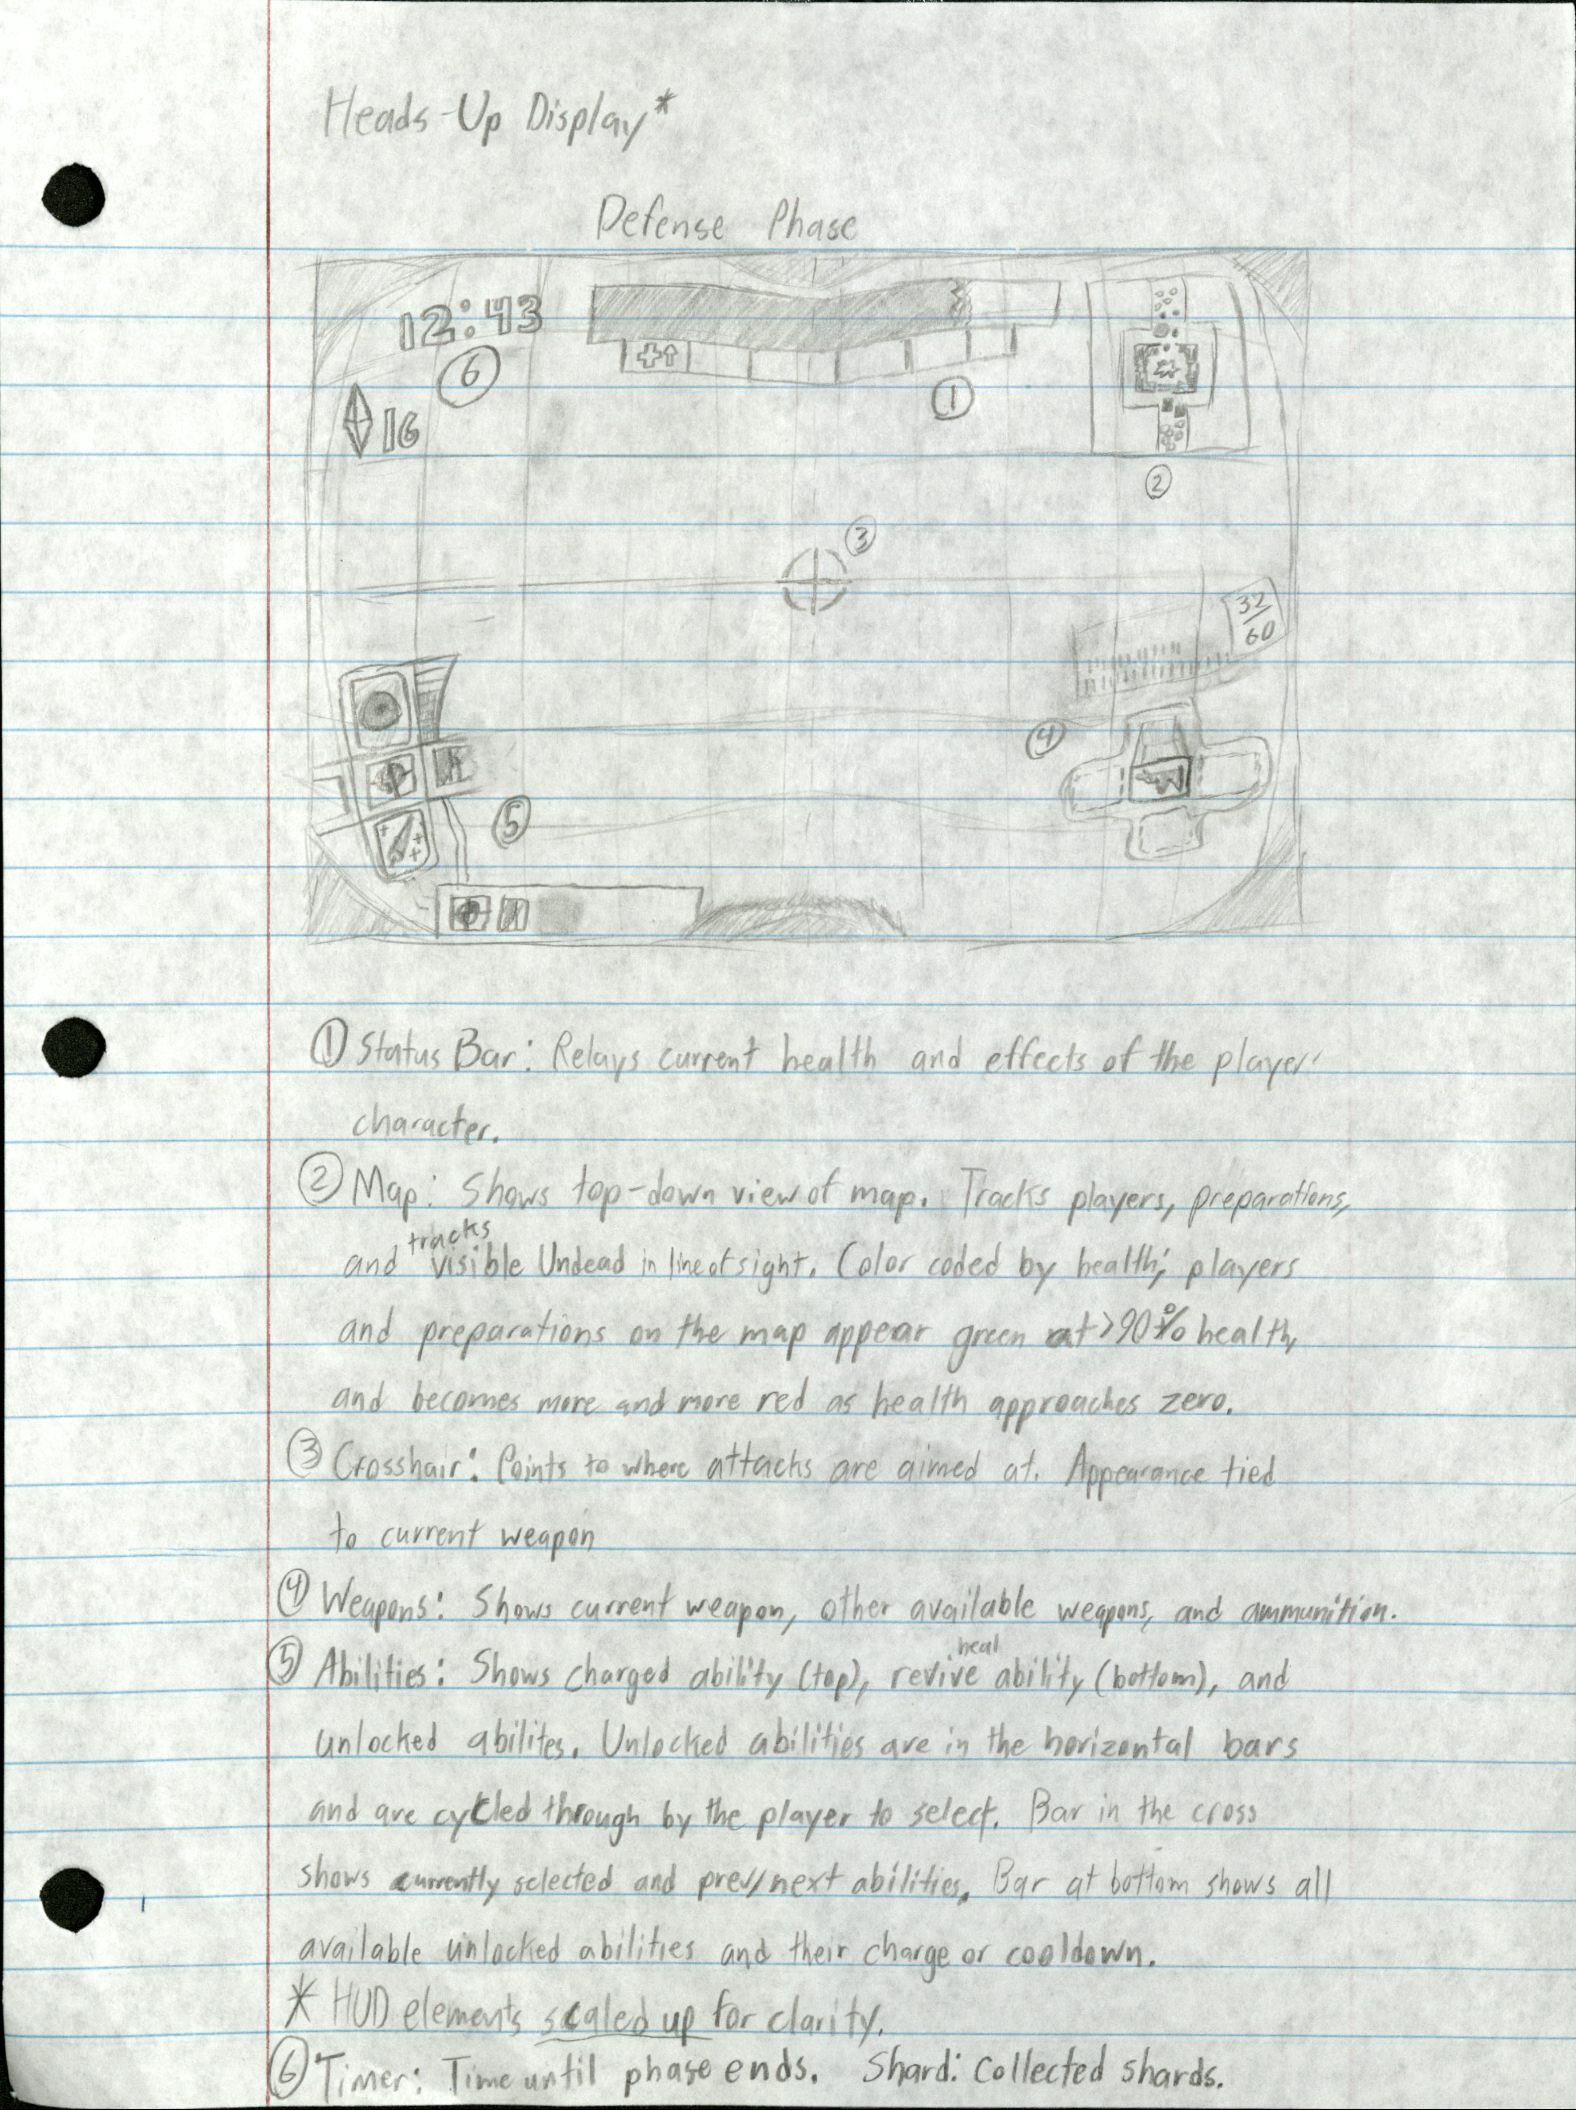 Heads-Up Display*
Defense Phase
12:43
6
1
16
2
3
32
60
4
5
① Status Bar: Relays current health and effects of the player
character.
② Map: Shows top-down view of map. Tracks players, preparations,
tracks
and visible Undead in line of sight. Color coded by health; players
and preparations on the map appear green at >90% health,
and becomes more and more red as health approaches zero.
③ Crosshair: Points to where attacks are aimed at. Appearance tied
to current weapon
④ Weapons: Shows current weapon, other available weapons, and ammunition.
heal
⑤ Abilities: Shows charged ability (top), revive ability (bottom), and
unlocked abilites. Unlocked abilities are in the horizontal bars
and are cycled through by the player to select. Bar in the cross
shows currently selected and prev/next abilities. Bar at bottom shows all
available unlocked abilities and their charge or cooldown.
* HUD elements scaled up for clarity.
⑥ Timer: Time until phase ends. Shard: Collected shards.